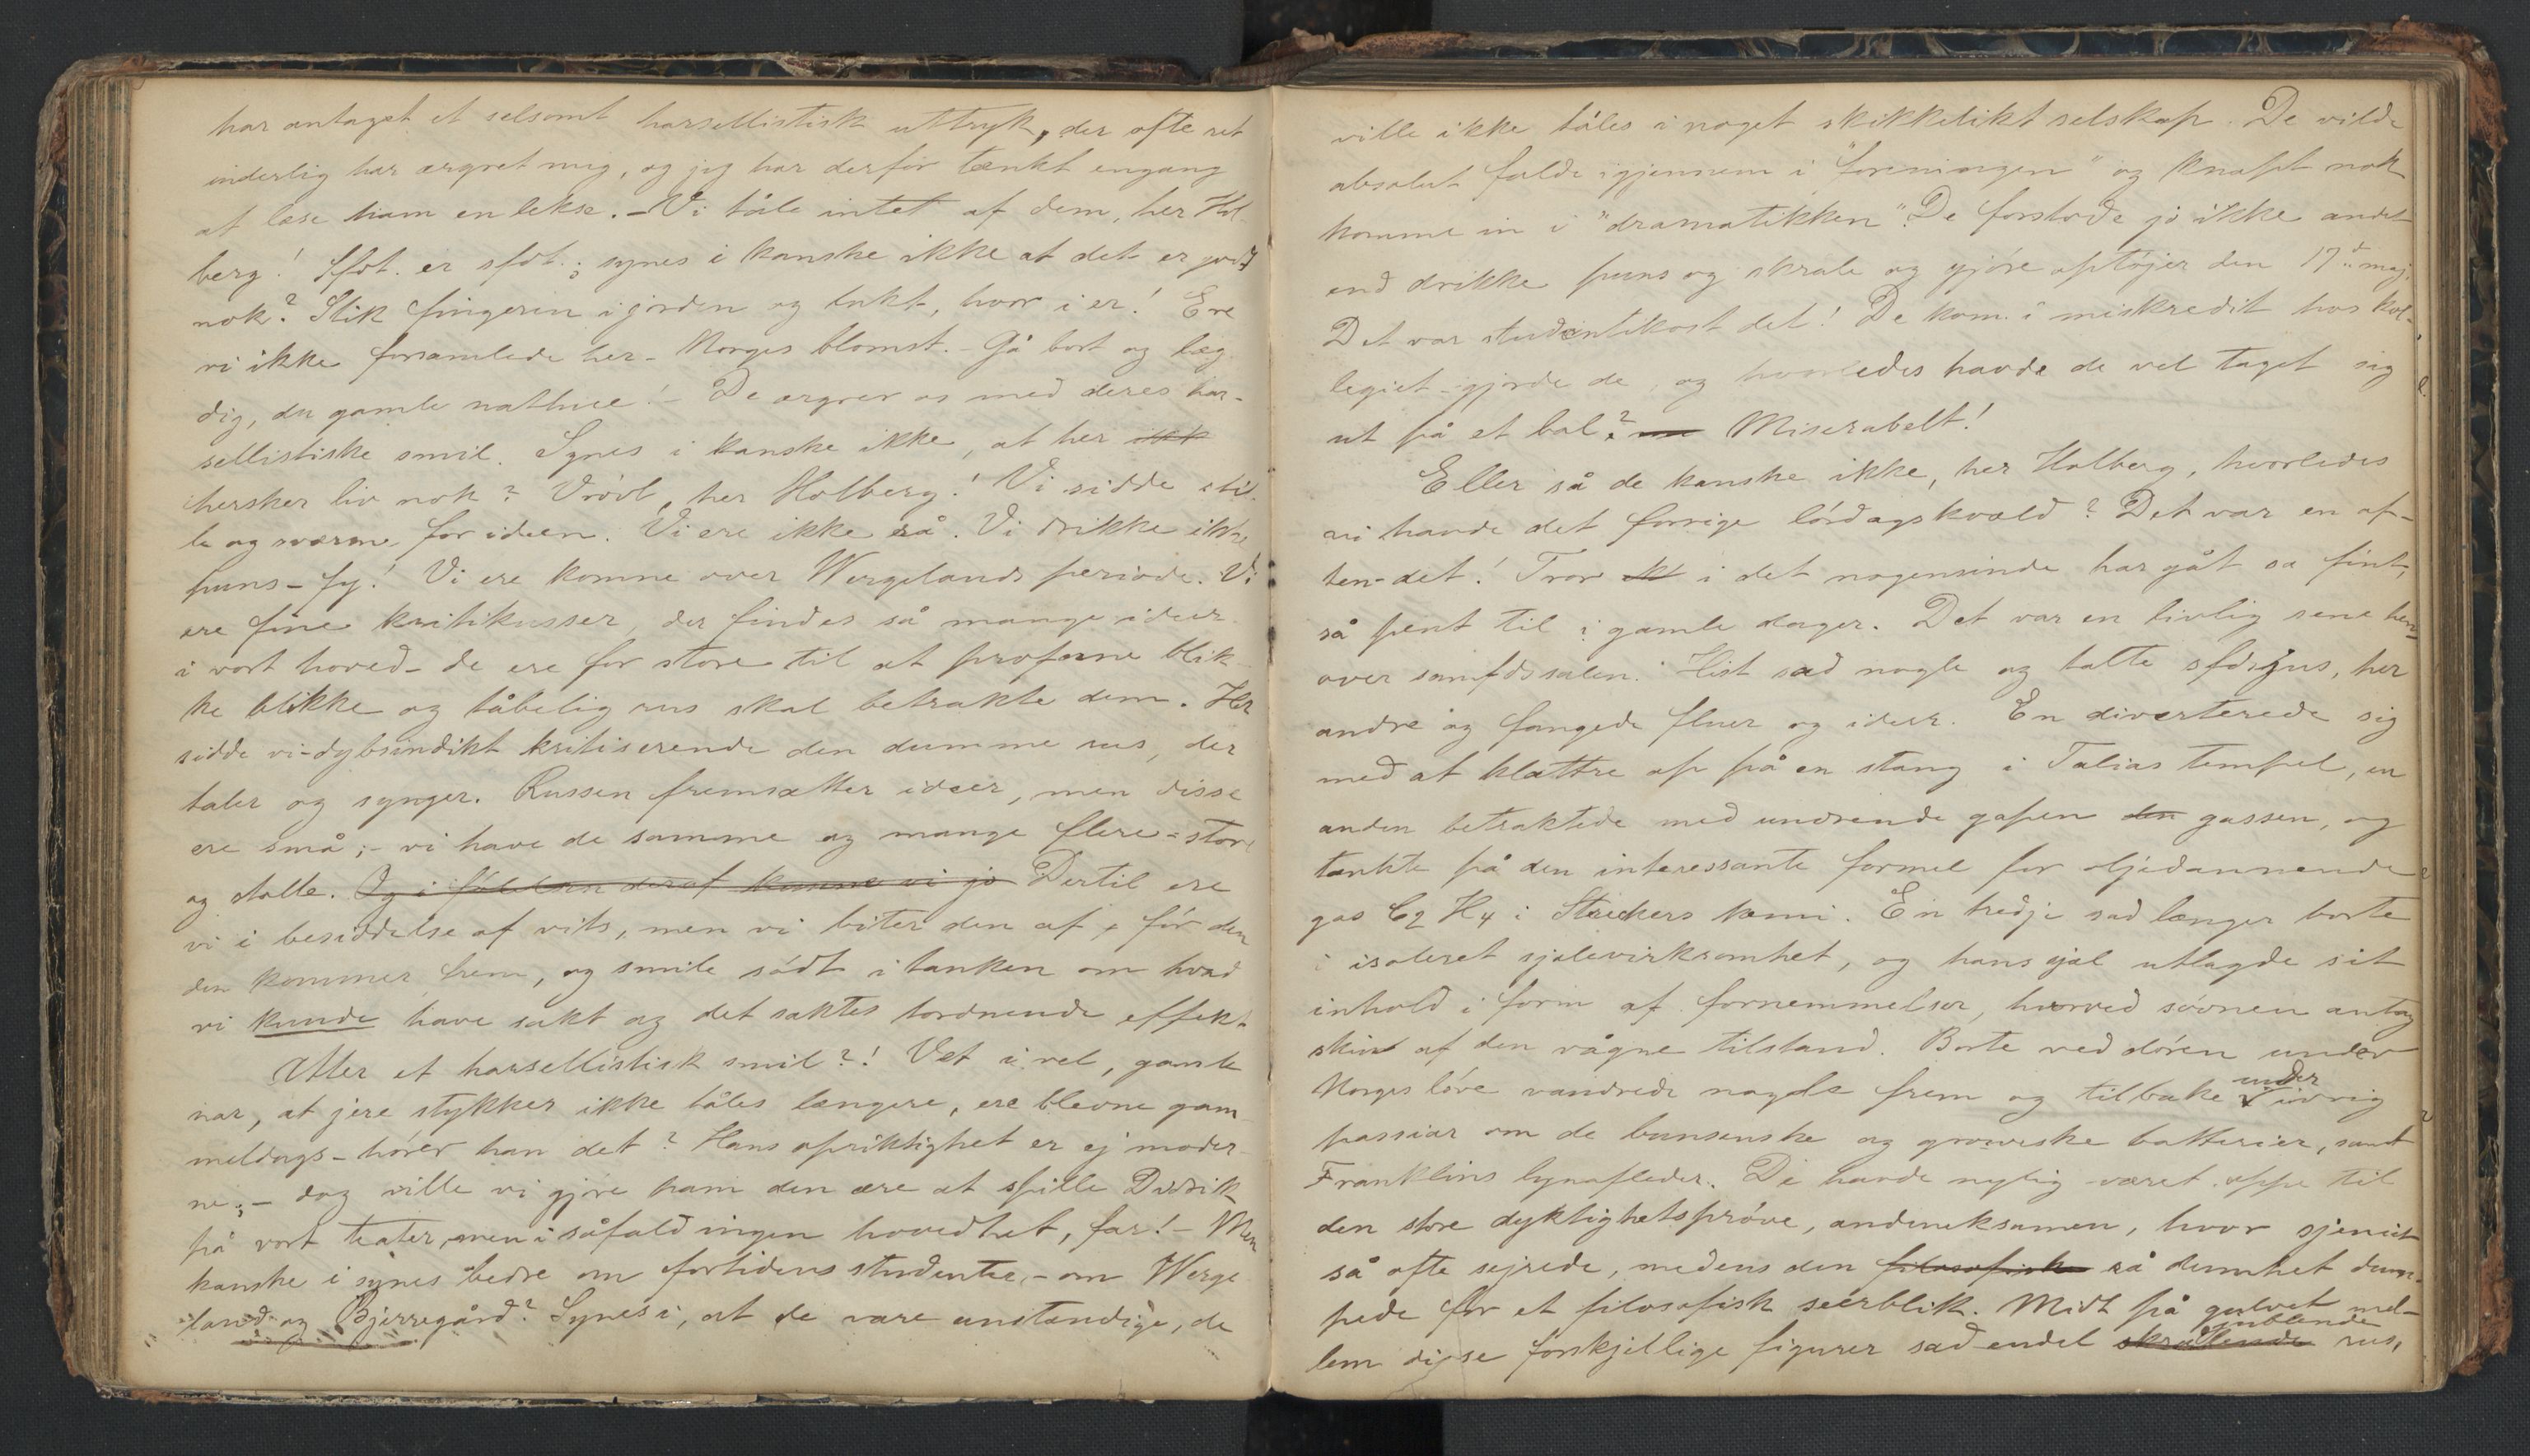 har antaget et selsomt harsellistisk uttryk, der ofte ret
inderlig har ærgret mig, og jeg har derfor tænkt engang
at læse ham en lekse. – Vi tåle intet af dem, her Hol-
berg! Sfdt. er sfdt.; synes i kanske ikke at det er godt
nok? Stik fingeren i jorden og lukt, hvor i er! Ere
vi ikke forsamlede her – Norges blomst. – Gå bort og læg
dig, du gamle nathue! – De ærgrer os med deres har-
sellistiske smil. Synes i kanske ikke, at her ikk
hersker liv nok? Vrövl, her Holberg! Vi sidde stil-
le og sværme for ideen. Vi ere ikke rå. Vi drikke ikke
puns – fy! Vi ere komne over Wergelands periode. Vi
ere fine kritikusser, der findes så mange ideer
i vort hoved – de ere for store til at profane blik-
ke blikke og tåbelig rus skal betrakte dem. Her
sidde vi – dybsindikt kritiserende den dumme rus, der
taler og synger. Russen fremsætter ideer, men disse
ere små; – vi have de samme og mange flere – store
og stolte. Og i følelsen deraf kunne vi jo Dertil ere
vi i besiddelse af vits, men vi biter den af, för den
den kommer frem, og smile södt i tanken om hvad
vi kunde have sakt og det saktes tordnende effekt
Atter et harsellistisk smil?! Vet i vel, gamle
nar, at jere stykker ikke tåles længere, ere blevne gam-
meldags – hörer han det? Hans opriktighet er ej moder-
ne; – dog ville vi gjöre ham den ære at spille Didrik
på vort teater, men i såfald ingen hovedhet, far! – Men
kanske i synes bedre om fortidens studenter, – om Werge
land og Bjerregård? Synes i, at de vare anstændige, de
ville ikke tåles i noget skikkelikt selskap. De vilde
absolut falde igjennem i "foreningen" og knapt nok
komme in i "dramatikken". De forstode jo ikke andet
end drikke puns og skråle og gjöre optöjer den 17de maj.
Det var studentikost det! De kom i miskredit hos kol-
legiet – gjorde de, og hvorledes havde de vel taget sig
ut på et bal? Miserabelt!
Eller så de kanske ikke, her Holberg, hvorledes
vi havde det forrige lördagskvæld? Det var en af-
ten – det! Tror i det nogensinde har gåt så fint,
så pent til i gamle dager. Det var en livlig sene hen-
over samfdssalen. Hist sad nogle og talte sfdsjus, her
andre og fangede fluer og ideer. En diverterede sig
med at klattre op på en stang i Talias tempel, en
anden betraktede med undrende gapen den gassen, og
tænkte på den interessante formel for oljedannende
gas C2 H4 i Streckers kemi. En tredje sad længer borte
i isoleret sjælevirksomhet, og hans sjæl utlagde sit
inhold i form af fornemmelser, hvorved sövnen antog
skin af den vågne tilstand. Borte ved dören under
Norges löve vandrede nogle frem og tilbake under ivrig
passiar om de bunsenske og groveske batterier, samt
Franklins lynafleder. De havde nylig været oppe til
den store dyktighetspröve, andeneksamen, hvor sjeniet
så ofte sejrede, medens den filosofiske rå dumhet dum-
pede for et filosofisk seerblik. Midt på gulvet mel-
lem disse forskjellige figurer sad endel skrålende jublende rus,